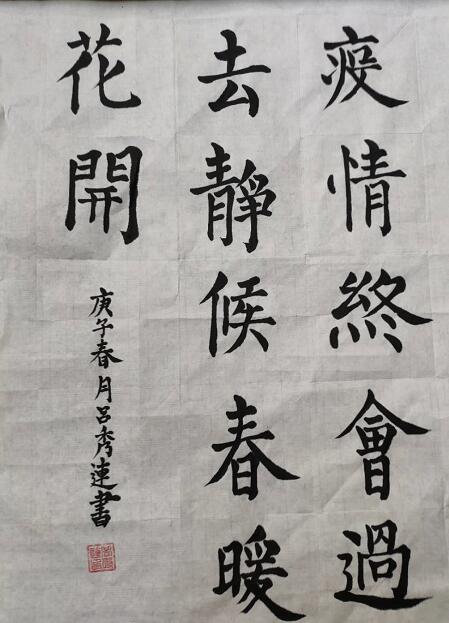 疫情終會過
去靜候春暖
花開
庚子春月呂秀連書